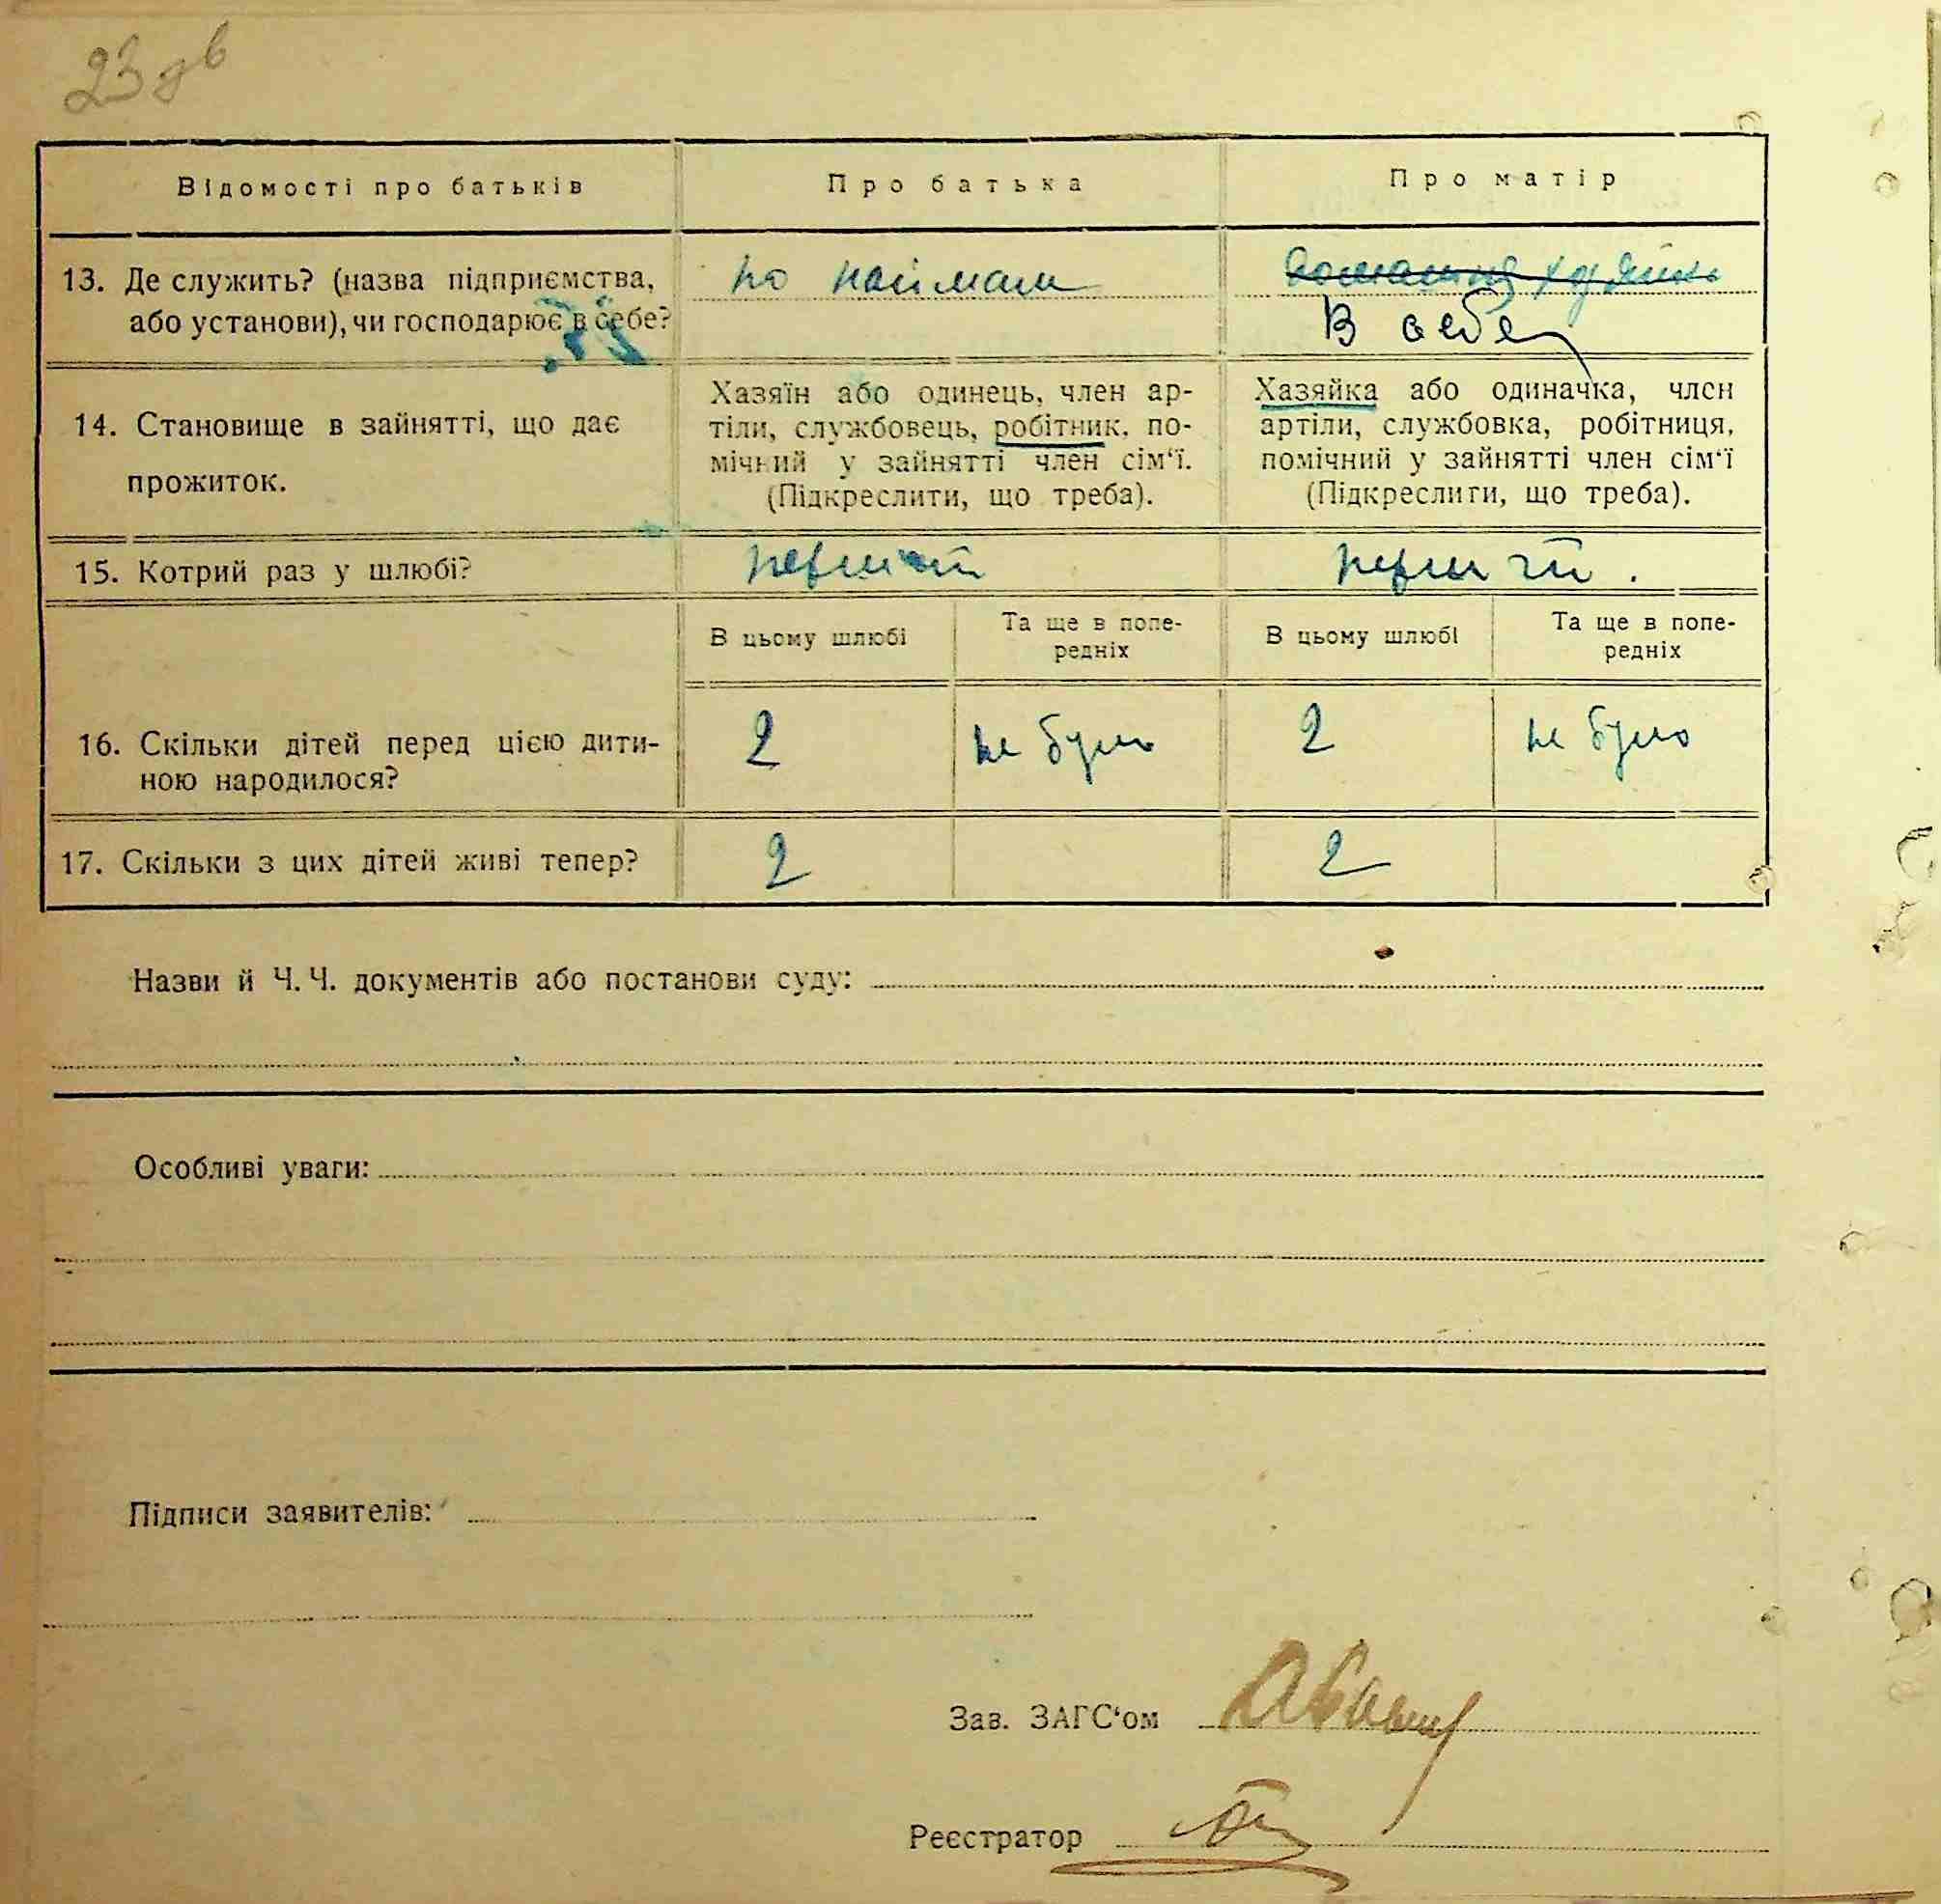 23 зв
Відомості про батьків
Про батька
Про матір
13. Де служить? (назва підприємства,
або установи), чи господарює в себе?
по наймам
В себе
14. Становище в зайнятті, що дає
прожиток.
Хазяїн або одинець, член ар-
тіли, службовець, робітник, по-
мічний у зайнятті член сім‘ї.
(Підкреслити, що треба).
Хазяйка або одиначка, член
артіли, службовка, робітниця,
помічний у зайнятті член сім‘ї
(Підкреслити, що треба).
15. Котрий раз у шлюбі?
перший
перший.
В цьому шлюбі
Та ще в попе-
редніх
В цьому шлюбі
Та ще в попе-
редніх
16. Скільки дітей перед цією дити-
ною народилося?
2
не було
2
не було
17. Скільки з цих дітей живі тепер?
2
2
Назви й Ч. Ч. документів або постанови суду:
Особливі уваги:
Підписи заявителів:
Зав. ЗАГС‘ом
Реєстратор